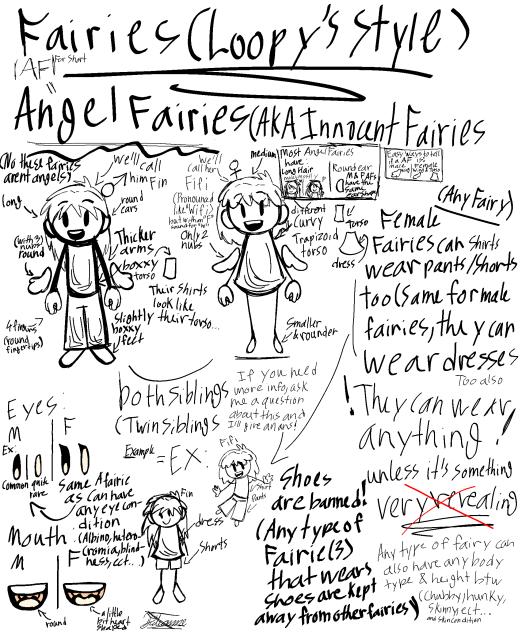 Fairies (Loopy's Style)
(AF) For Short
Angel Fairies (AKA Innocent Fairies
(No these fairies
arent angels)
we'll
call
him Fin
we'll
call her
Fifi
(Pronounced
like "Wifi"
Only 2
nubs
long
round
ears
(with 3) nubs
round
Thicker
arms
boxxy
torso
Their shirts
look like
their torso...
Slightly
boxxy
feet
(round
fingertips)
medium
Most Angel Fairies
have
Long Hair
Round ear
M & F AFs
have the
same
Easy ways to tell
if a AF is
different
Curvy
Trapizoid
torso
torso
dress
Smaller
& rounder
(Any Fairy)
Female
Fairies can
wear pants/shorts
Shirts
too (same for male
fairies, they can
wear dresses
Too also
! They can wear
anything!
unless it's something
very revealing
Any type of fairy can
also have any body
type & height btw
(chubby, hunky,
skinny, ect...
and skin condition
both siblings
(Twin siblings
If you need
more info, ask
me a question
about this and
I'll give an ans!
Example = EX:
Eyes:
M F
Ex:
common quick
rare
Same A fairie
as can have
any eye con-
dition
(Albino, hetero-
cromia, blind-
ness, ect...)
Mouth:
M F
round
a little
bit heart
shaped
Fin
dress
Shorts
Fifi
Short
Pants
Shoes
are banned!
(Any type of
Fairie(s)
that wears
shoes are kept
away from other fairies)